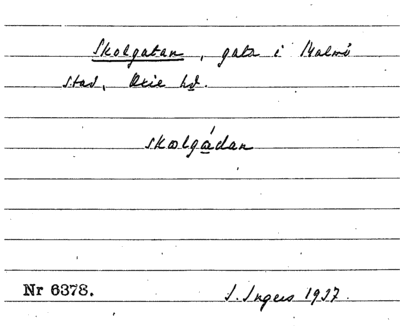 Skolgatan, gata i Malmö
stad, Oxie hd.
skolgádan
Nr 6378.
I. Ingers 1937.